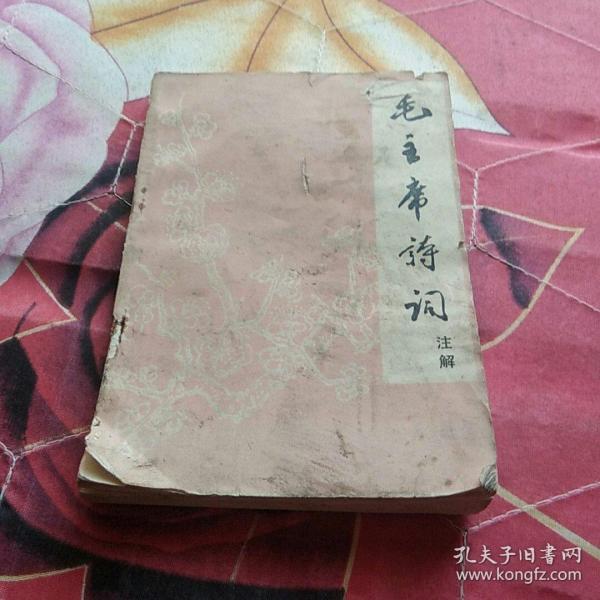 毛主席詩词
注解
孔夫子旧书网
www.kongfz.com